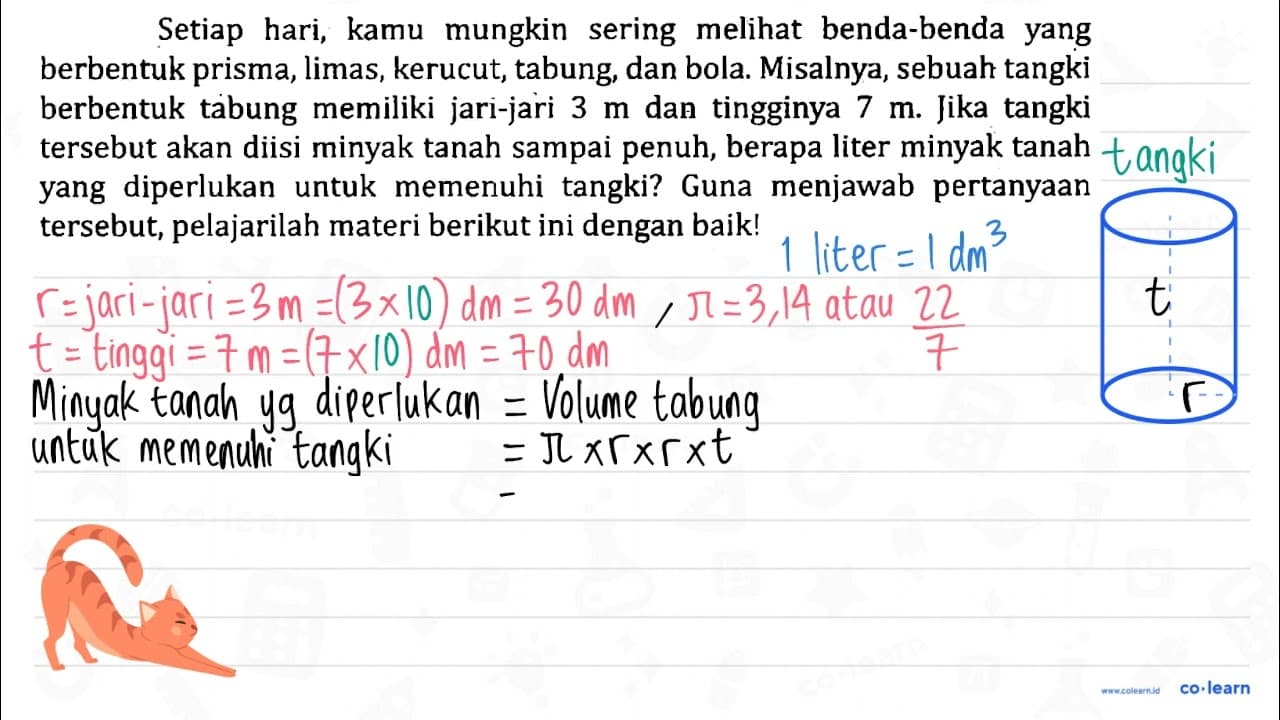 Setiap hari, kamu mungkin sering melihat benda-benda yang
berbentuk prisma, limas, kerucut, tabung, dan bola. Misalnya, sebuah tangki
berbentuk tabung memiliki jari-jari 3 m dan tingginya 7 m. Jika tangki
tersebut akan diisi minyak tanah sampai penuh, berapa liter minyak tanah
yang diperlukan untuk memenuhi tangki? Guna menjawab pertanyaan
tersebut, pelajarilah materi berikut ini dengan baik!
tangki
1 liter = 1 dm³
r = jari-jari = 3 m = (3 x 10) dm = 30 dm , π = 3,14 atau 22/7
t = tinggi = 7 m = (7 x 10) dm = 70 dm
t
r
Minyak tanah yg diperlukan = Volume tabung
untuk memenuhi tangki = π x r x r x t
-
www.colearn.id co·learn